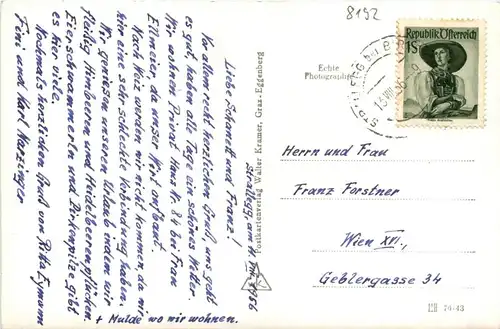 8192
Strallegg am 14. VIII. 1956
Liebe Schanett und Franz!
Vor allem recht herzlichen Gruß, uns geht
es gut, haben alle Tage ein schönes Weter.
Wir wohnen Privat Haus N. 8 bei Frau
Ellmeier, da unser Wirt umbaut.
Nach Weiz können wir nicht kommen, da wir
hir eine sehr schlechte Verbindung haben.
Wir geniesen unseren Urlaub indem wir
fleißig Himbeeren und Heidelbeeren pflücken
Eierschwammerln und Birkenpilze gibt
es hier viele.
Nochmals herzlichen Gruß von Rita Eymann
Fini und Karl
+ Mulde wo mir wohnen.
Postkartenverlag Walter Kramer, Graz-Eggenberg
Echte
Photographie
Republik Österreich
1S
13.VIII.56
Herrn und Frau
Franz Forstner
Wien XVI.,
Geblergasse 34
74/43